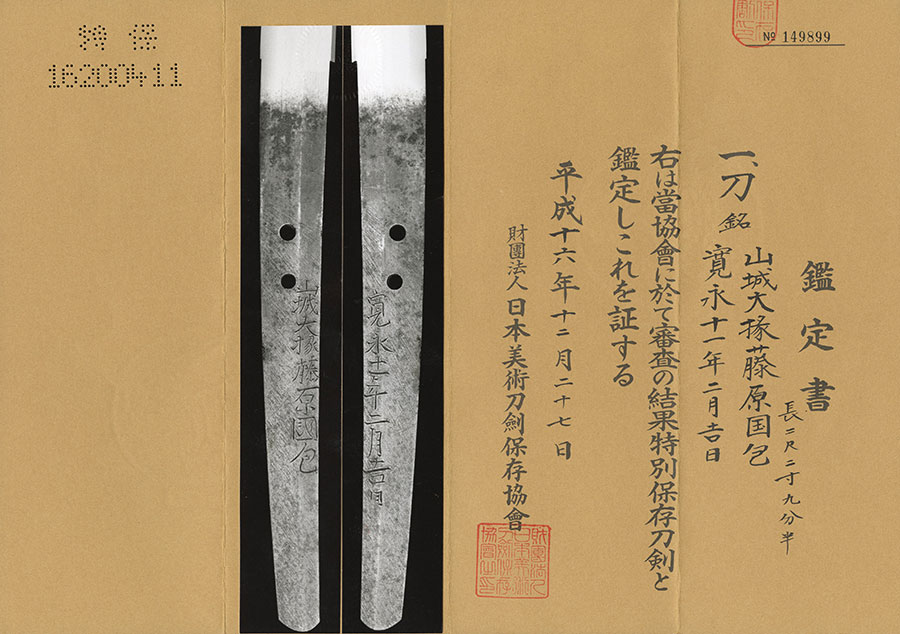 № 149899
鑑定書
長二尺二寸九分半
一、刀 銘 山城大掾藤原国包
寛永十一年二月吉日
右は當協會に於て審査の結果特別保存刀剣と
鑑定しこれを証する
平成十六年十二月二十七日
財團法人日本美術刀劍保存協會
寛永十一年二月吉日
山城大掾藤原国包
特保
16200411